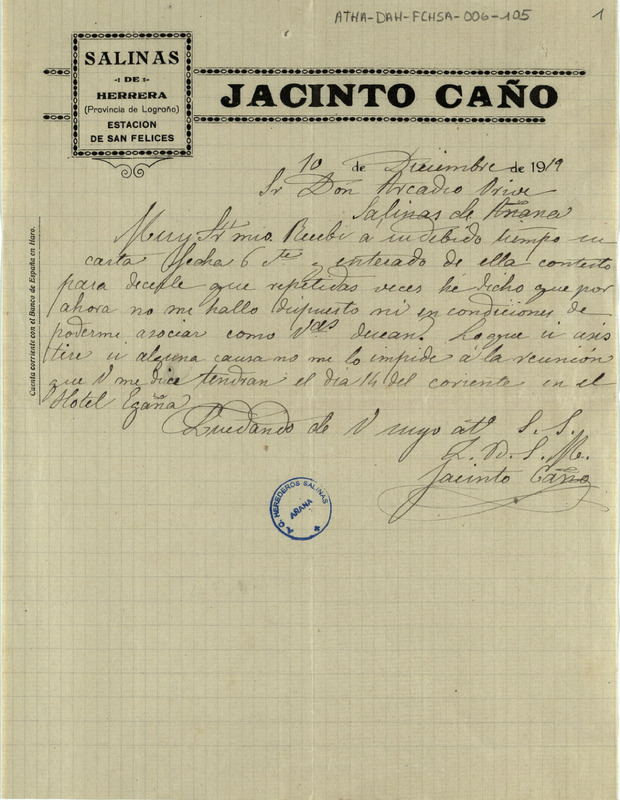 ATHA-DAH-FCHSA-006-105
1
SALINAS
DE
HERRERA
(Provincia de Logroño)
ESTACION
DE SAN FELICES
JACINTO CAÑO
10 de Diciembre de 1919
Sr Don Arcadio
Salinas de Añana
Muy Sr mio. Recibi a su debido tiempo su
carta fecha 6 y enterado de ella contesto
para decirle que repetidas veces he dicho que por
ahora no me hallo dispuesto ni en condiciones de
poderme asociar como Vdes desean. Lo que si asis
tire si alguna causa no me lo impide a la reunión
que V me dice tendran el dia 14 del corriente en el
Hotel Egaña
Quedando de V suyo atº S. S.
Q. B. S. M.
Jacinto Caño
Cuenta corriente con el Banco de España en Haro.
HEREDEROS SALINAS
AÑANA